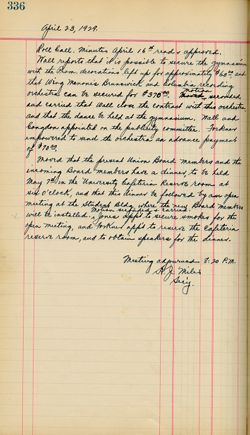 336
April 23, 1929.
Roll Call. Minutes April 16th read & approved.
Wall reports that it is possible to secure the gymnasium
with the Prom decorations left up for approximately $60.00 and
that Wing Menonis Brunswick and Columbia recording
orchestra can be secured for $375.00. Motion seconded
and carried that Wall close the contract with this orchestra
and that the dance be held at the gymnasium. Wall and
Congdon appointed on the publicity committee.
empowered to send the orchestra an advance payment
of
Moved that the present Union Board members and the
incoming Board members have a dinner to be held
May 7th in the University Cafeteria Reserve room at
six o'clock, and that this dinner be followed by an open
meeting at the Student Bldg. where the new Board members
will be installed. Motion seconded & carried. Jones app't to secure smokes for the
open meeting, and app't to reserve the Cafeteria
reserve room, and to obtain speakers for the dinner.
Meeting adjourned 8:30 P.M.
Miles
Sec'y.